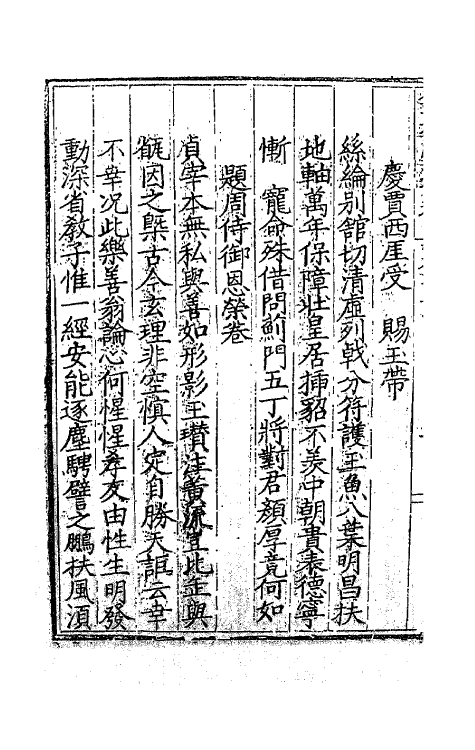 慶賈西厓受　賜玉帶
絲綸別館切清虛列戟分符護玉魚八葉明昌扶
地軸萬年保障壯皇居揷貂不羨中朝貴表德寧
慚　寵命殊借問薊門五丁將對君顏厚竟何如
題周侍御恩榮卷
眞宰本無私與善如形影玉瓚注黃流宜此正與
瓻因之槩古今玄理非空慎人定自勝天詎云幸
不幸況此樂善翁論心何惺惺孝友由性生明發
動深省敎子惟一經安能逐塵騁譬之鵬扶風湏